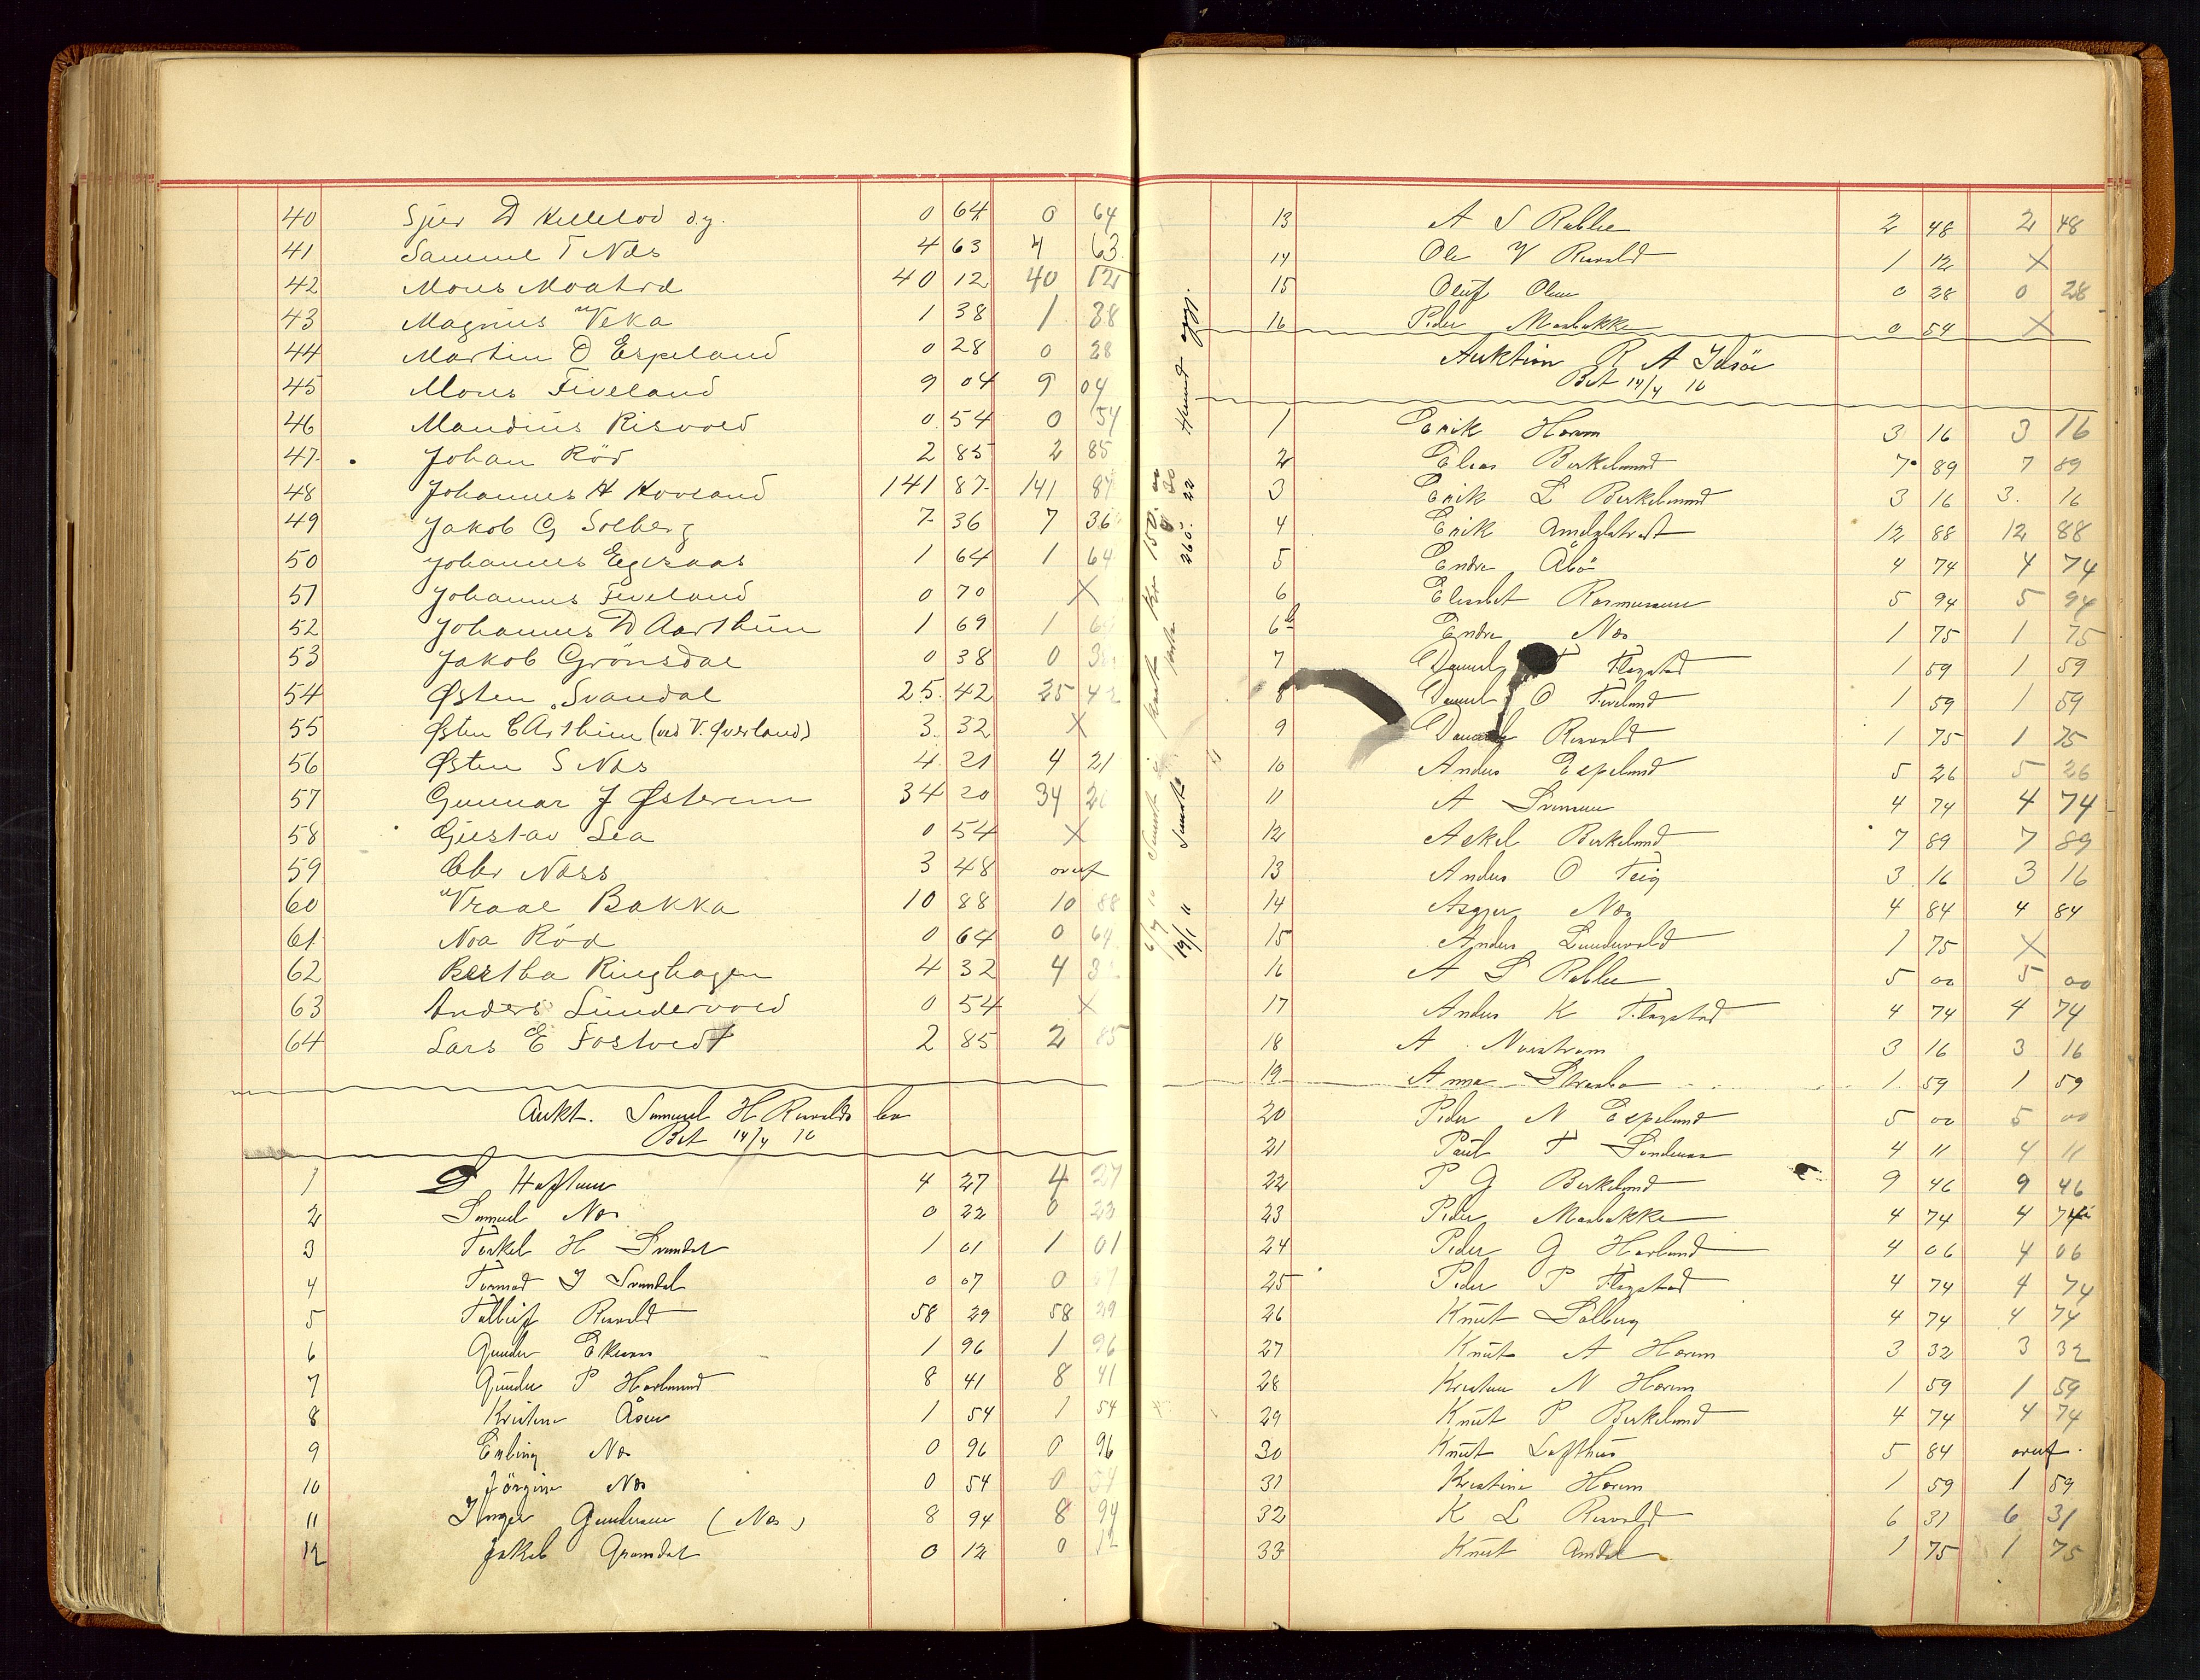 40 Sjur D Hellelod d.y. 0 64 0 64
41 Samuel T Næs 4 63 4 63
42 Mons Moatvd 40 12 40 12
43 Magnus Veka 1 38 1 38
44 Martin O Espeland 0 28 0 28
45 Mons Fiveland 9 04 9 04
46 Mandius Risvold 0 54 0 54
47 Johan Röd 2 85 2 85
48 Johannes H Hovland 141 87 141 87
49 Jakob G Solberg 7 36 7 36
50 Johannes Egesaas 1 64 1 64
51 Johannes Fiveland 0 70 X
52 Johannes D Aarthun 1 69 1 69
53 Jakob Grönsdal 0 38 0 38
54 Østen Svandal 25 42 25 42
55 Østen E Arthun (ved V. Øverland) 3 32 X
56 Østen S Næs 4 21 4 21
57 Gunnar J Østerem 34 20 34 20
58 Giestav Lea 0 54 X
59 Ole Næss 3 48 overf
60 Vraal Bakka 10 88 10 88
61 Noa Röd 0 64 0 64
62 Bertha Ringhagen 4 32 4 32
63 Anders Lundervold 0 54 X
64 Lars E Fostvedt 2 85 2 85
Aukt. Samuel H Risvolds bo
Bet 14/4 10
1 D Haftun 4 27 4 27
2 Samuel Næs 0 22 0 22
3 Torkel H Svandal 1 01 1 01
4 Tormod J Svandal 0 07 0 07
5 Tolleif Risvold 58 29 58 29
6 Gunder Ekesaas 1 96 1 96
7 Gunder P Havland 8 41 8 41
8 Kristine Åsen 1 54 1 54
9 Erling Næs 0 96 0 96
10 Jörgine Næs 0 54 0 54
11 Inger Gundersen (Næs) 8 94 8 94
12 Jakob Grønsdal 0 12 0 12
13 A S Rabbe 2 48 2 48
14 Ole V Risvold 1 12 X
15 Oluf Olsen 0 28 0 28
16 Peder Mosbakke 0 54 X
Auktion R A Idsöe
Bet 14/4 10
1 Erik Horem 3 16 3 16
2 Elias Birkeland 7 89 7 89
3 Erik L Birkeland 3 16 3 16
4 Erik Amdalstvedt 12 88 12 88
5 Endre Åbö 4 74 4 74
6 Elisabet Rasmussen 5 94 5 94
6b Endre Næs 1 75 1 75
7 Daniel T Flagstad 1 59 1 59
8 Daniel O Fiveland 1 59 1 59
9 Daniel Risvold 1 75 1 75
10 Anders Espeland 5 26 5 26
11 A Svensen 4 74 4 74
12 Askel Birkeland 7 89 7 89
13 Anders O Teig 3 16 3 16
14 Asgjer Næs 4 84 4 84
15 Anders Lundervold 1 75 X
16 A S Rabbe 5 00 5 00
17 Anders K Flagstad 4 74 4 74
18 A Norstrøm 3 16 3 16
19 Anna 1 59 1 59
20 Peder N Espeland 5 00 5 00
21 Paul T 4 11 4 11
22 P G Birkeland 9 46 9 46
23 Peder Mosbakke 4 74 4 74
24 Peder G Havland 4 06 4 06
25 Peder P Flagstad 4 74 4 74
26 Knut Solberg 4 74 4 74
27 Knut A Horem 3 32 3 32
28 Kristen N Horem 1 59 1 59
29 Knut P Birkeland 4 74 4 74
30 Knut Lofthus 5 84 overf.
31 Kristine Horem 1 59 1 59
32 K L Risvold 6 31 6 31
33 Knut Amdal 1 75 1 75